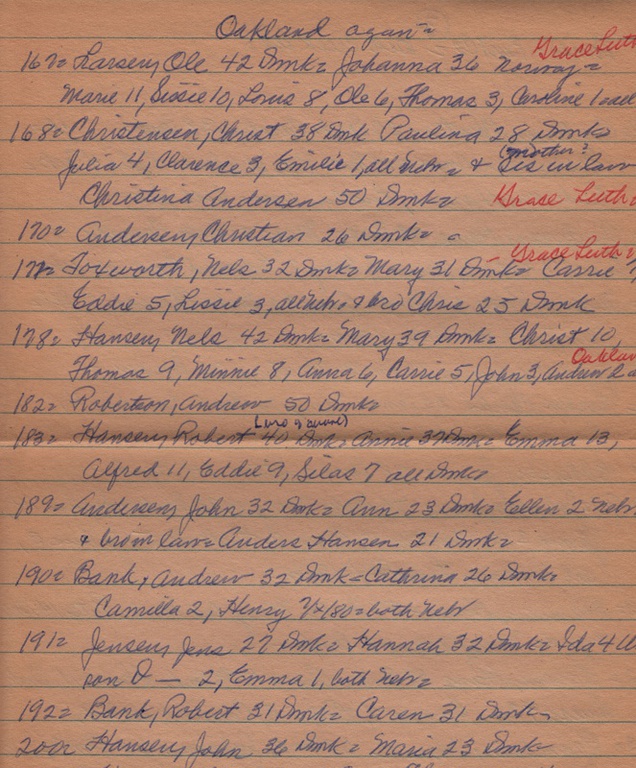 Oakland again=
Grace Luth
167= Larsen, Ole 42 Dmk= Johanna 36 Norway=
Marie 11, Sissie 10, Louis 8, Ole 6, Thomas 3, Caroline 1=all
168= Christensen, Christ 38 Dmk Paulina 28 Dmk=
mother?
Julia 4, Clarence 3, Emilie 1, all Nebr= & sis in law
Christina Andersen 50 Dmk= Grace Luth=
170= Andersen, Christian 26 Dmk=
Grace Luth=
Foxworth, Nels 32 Dmk= Mary 31 Dmk= Carrie 7
Eddie 5, Lissie 3, all Nebr. & bro Chris 25 Dmk
178= Hansen, Nels 42 Dmk= Mary 39 Dmk= Christ 10,
Oaklan
Thomas 9, Minnie 8, Anna 6, Carrie 5, John 3, Andrew 2 a
182= Robertson, Andrew 50 Dmk=
183= Hansen, Robert 40 Dmk= Annie 37 Dmk= Emma 13,
Alfred 11, Eddie 9, Silas 7 all Dmk=
189= Andersen, John 32 Dmk= Ann 23 Dmk= Ellen 2 Nebr
& bro in law= Anders Hansen 21 Dmk=
190= Bank, Andrew 32 Dmk= Cathrina 26 Dmk=
Camilla 2, Henry 7/1880=both Nebr
191= Jensen, Jens 27 Dmk= Hannah 32 Dmk= Ida 4 W
son O — 2, Emma 1, both Nebr=
192= Bank, Robert 31 Dmk= Caren 31 Dmk=
200= Hansen, John 36 Dmk= Maria 23 Dmk=